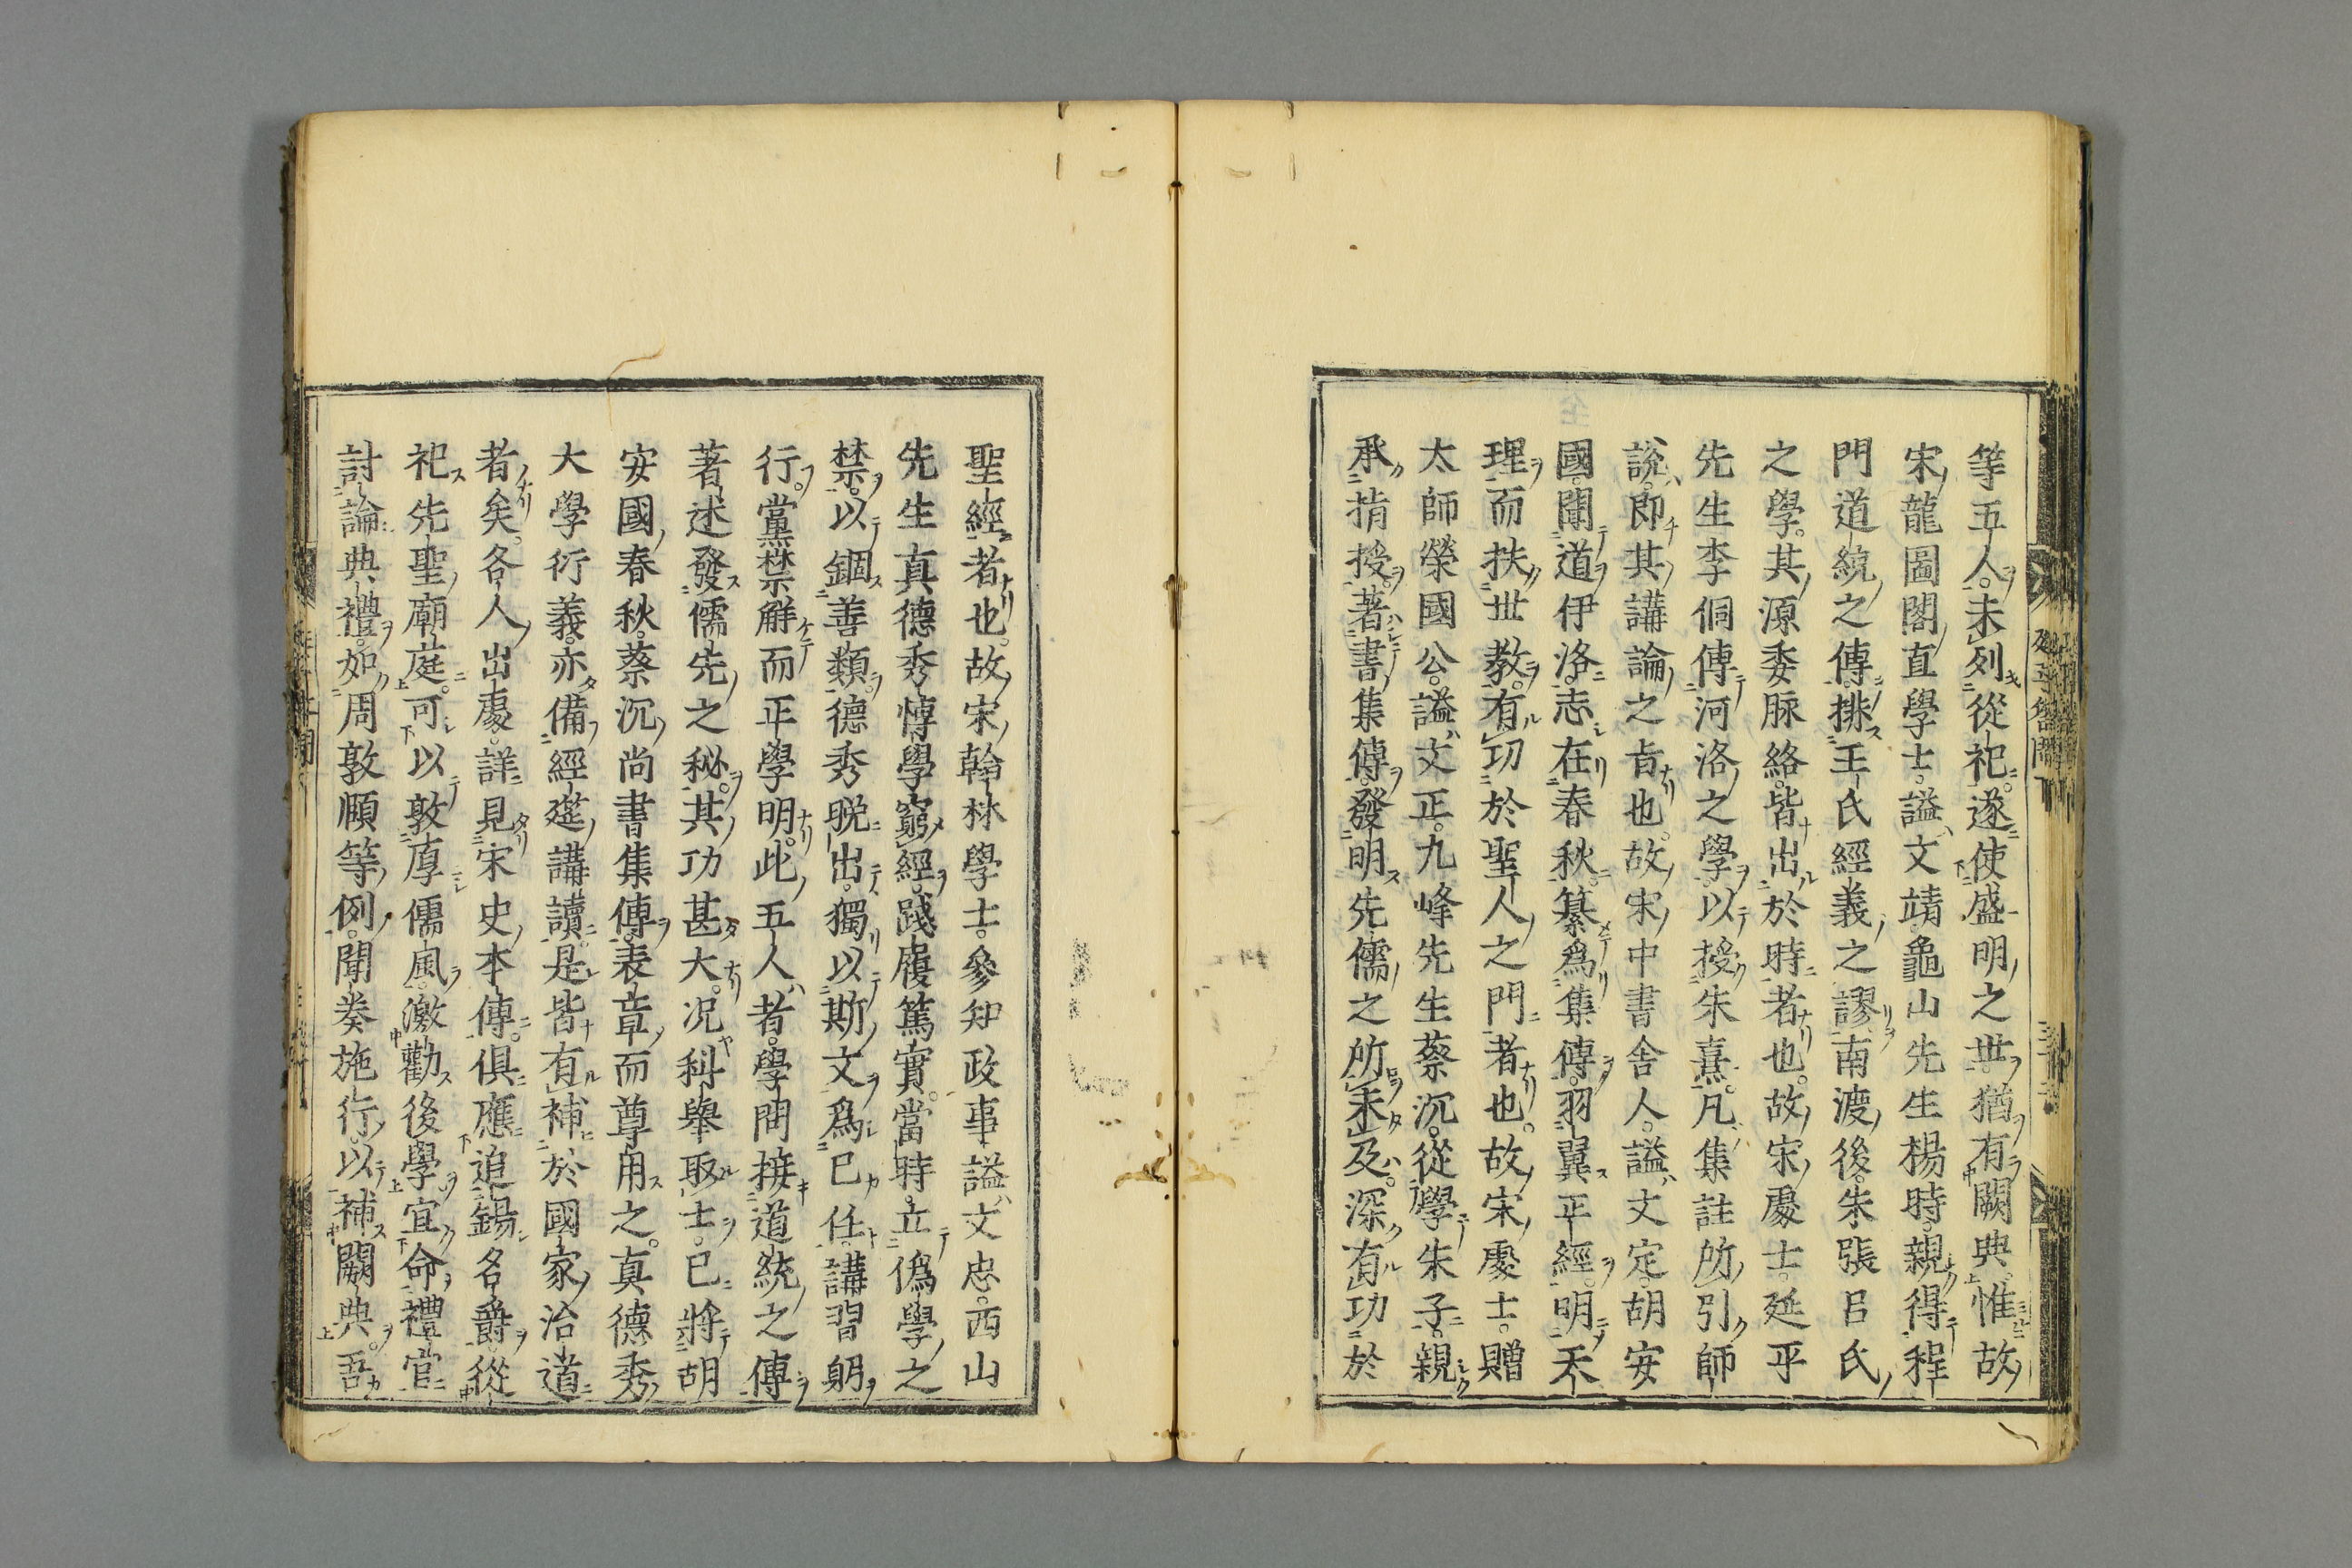 等五人未列從祀遂使盛明之世猶有闕典惟故
宋龍圖閣直學士諡文靖龜山先生楊時親得程
門道統之傳排王氏經義之謬南渡後朱張呂氏
之學其源委脉絡皆出於時者也故宋處士延平
先生李侗傳河洛之學以授朱熹凡集註所引師
說即其講論之旨也故宋中書舍人諡文定胡安
國聞道伊洛志在春秋纂爲集傳羽翼正經明天
理而扶世教有功於聖人之門者也故宋處士贈
太師榮國公諡文正九峰先生蔡沉從學朱子親
承指授著書集傳發明先儒之所未及深有功於
聖經者也故宋翰林學士參知政事諡文忠西山
先生真德秀博學窮經踐履篤實當時立僞學之
禁以錮善類德秀晩出獨以斯文爲已任講習躬
行黨禁解而正學明此五人者學問接道統之傳
著述發儒先之秘其功甚大况科舉取士已將胡
安國春秋蔡沉尚書集傳表章而尊用之真德秀
大學衍義亦備經筵講讀是皆有補於國家治道
者矣各人出處詳見宋史本傳俱應追錫名爵從
祀先聖廟庭可以敦厚儒風激勸後學宜命禮官
討論典禮如周敦頤等例聞奏施行以補闕典吾